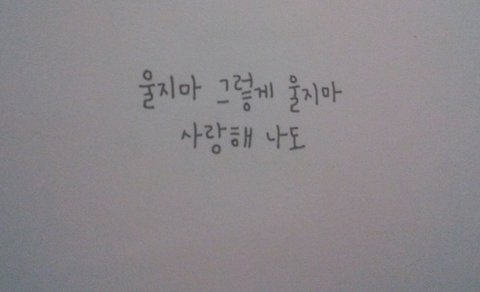 울지마 그렇게 울지마
사랑해 나도